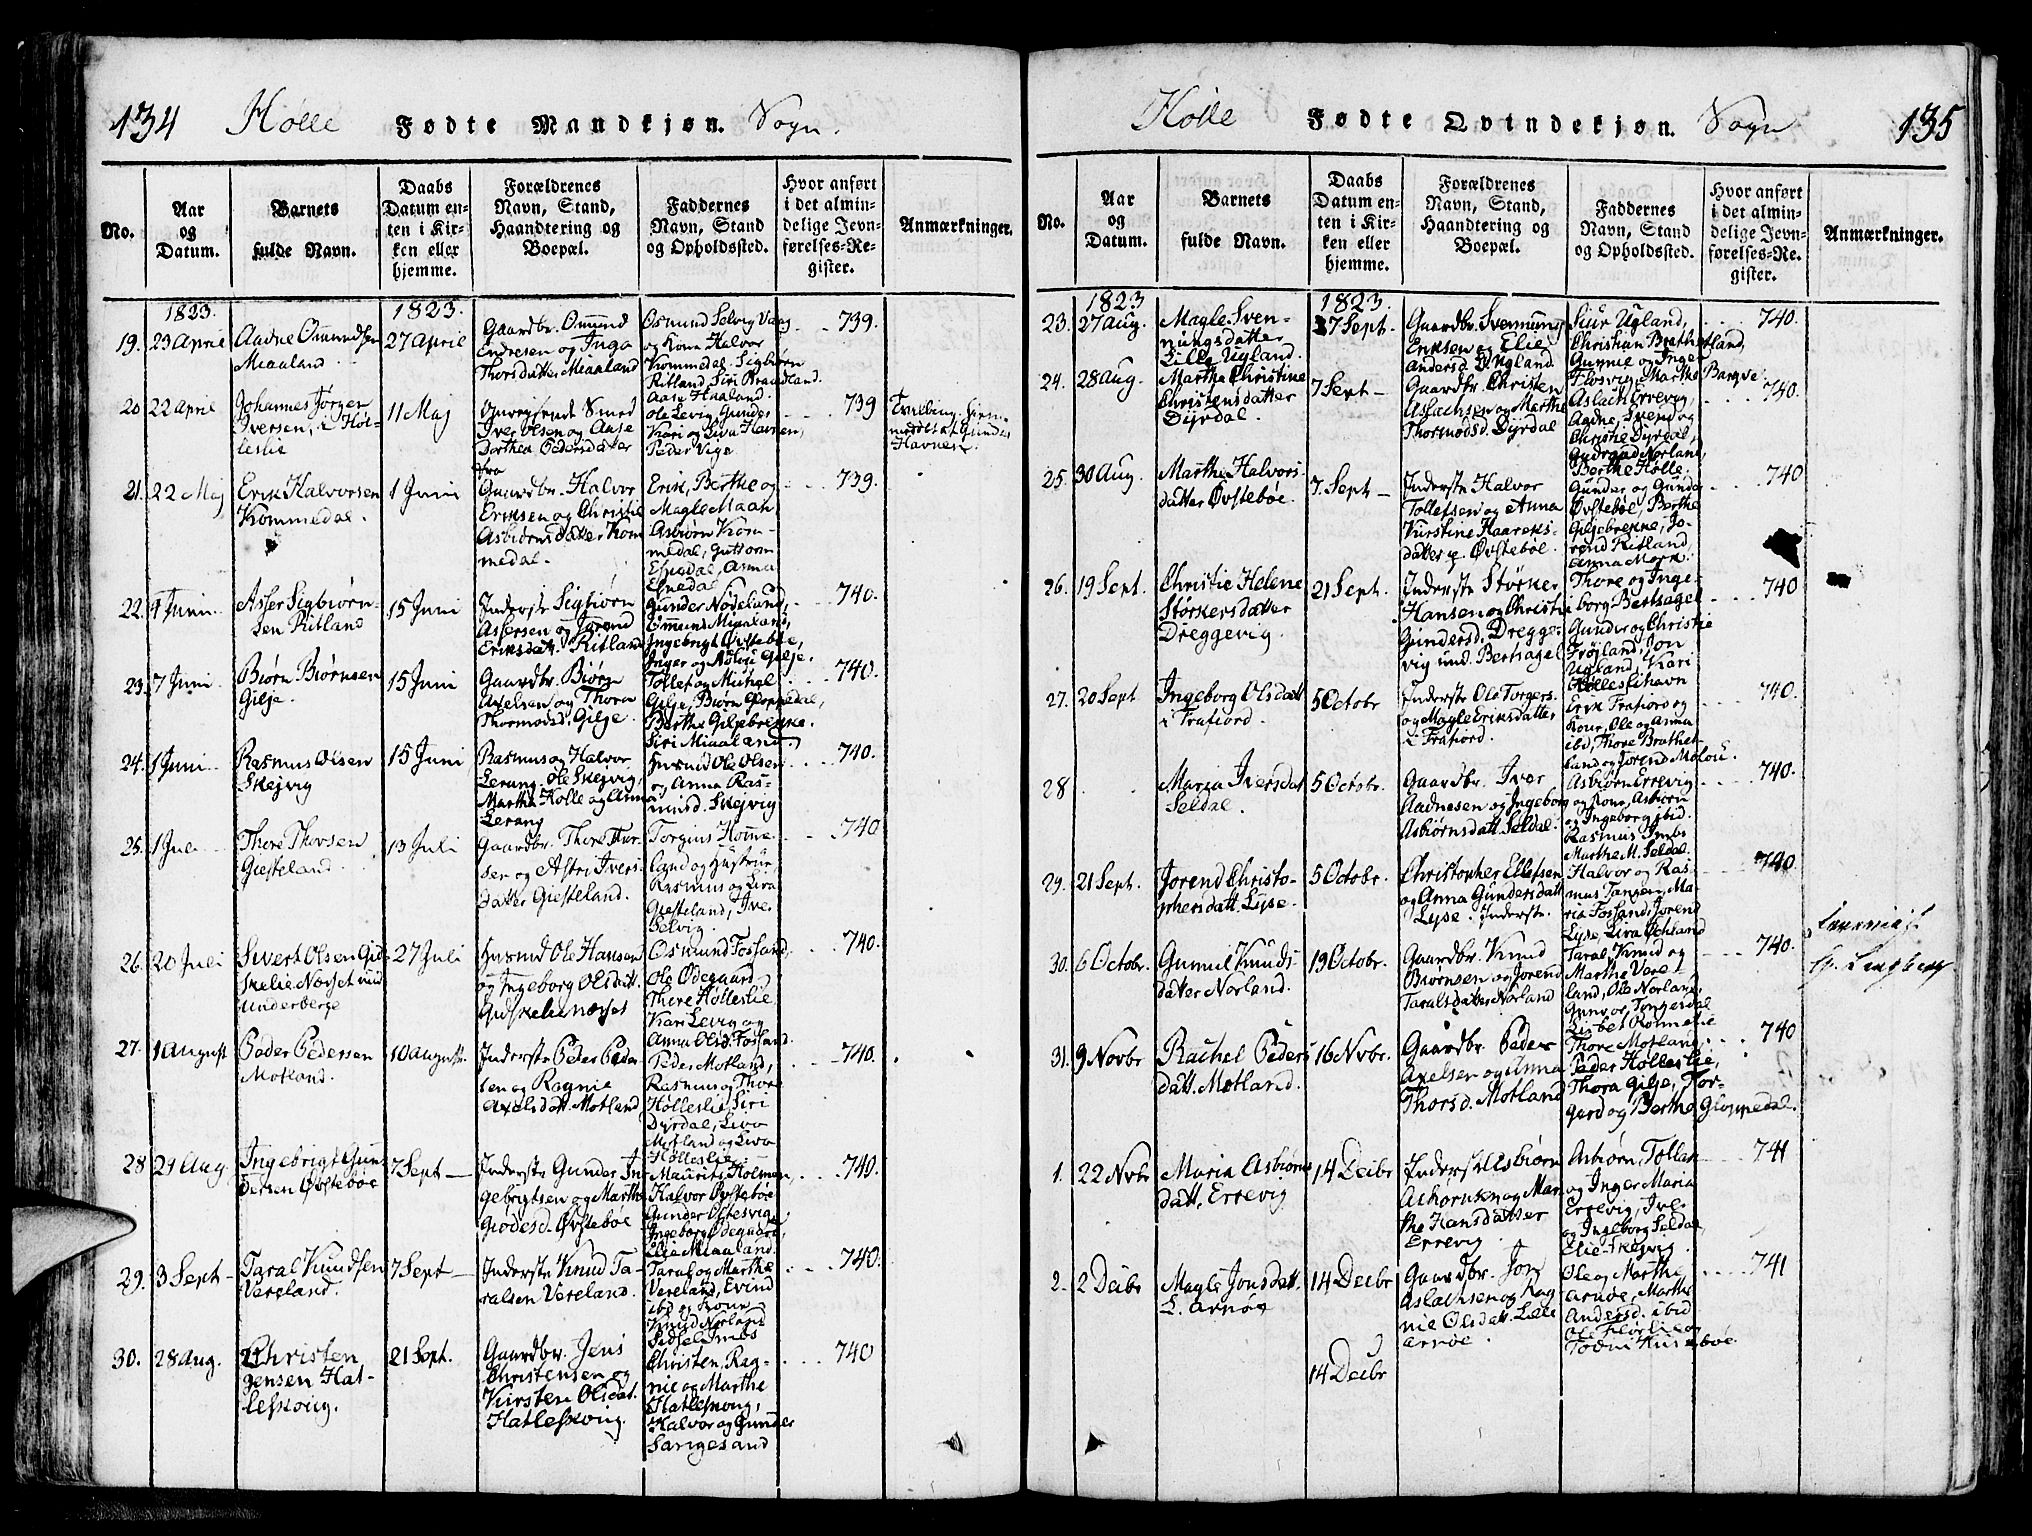 134 Hølle Fødte Mandkjøn. Sogn.
No.
Aar
og
Datum.
Barnets
fulde Navn.
Daabs
Datum en-
ten i Kir-
ken eller
hjemme.
Forældrenes
Navn, Stand,
Haandtering og
Boepæl.
Faddernes
Navn, Stand
og Opholdssted.
Hvor anført
i det almin-
delige Jevn-
førelses-Re-
gister.
Anmærkninger.
1823.
1823.
19. 23 April
Aadne Ommundsen
Miaaland
27 April
Gaardbr. Ommund
Endresen og Inga
Thorsdatter Miaaland
Osmund Selvig
og Kone Halvor
Kommedal. Sigbiørn
Ritland, Siri Brandland.
Aase Haaland.
739.
20 22 April
Johannes Jørgen
Iversen, i Høl-
leslie
11 Maj
Smed
Iver Olsen og Aase
Dorthea Pedersdatter
Ole Levig, Gunder
Kari og Liva Havnen,
Peder Vige
739
Tvilling
Havnen
21. 22 Maj
Erik Halvorsen
Kommedal.
1 Juni
Gaardbr. Halvor
Eriksen og Christie
Asbiørnsdatter Kom
medal.
Erik, Berthe og
Magle Maan
Asbiørn Kom-
medal, Guttorm
Espedal, Anna
Espedal
739.
22. 4 Juni
Asser Sigbiørn-
sen Ritland
15 Juni
Inderste Sigbiørn
Assersen og Jorend
Eriksdatt. Ritland
Gunder Nødeland,
Ommund Miaaland,
Ingebrigt Øvstebøe,
Inger og Gilje.
740.
23. 7 Juni
Biørn Biørnsen
Gilje.
15 Juni
Gaardbr. Biørn
Axelsen og Thora
Thormodsd. Gilje.
Tollef og Michel
Gilje, Biørn Gloppedal,
Berthe Giljebrekke.
Siri Miaaland.
740.
24. 1 Juni
Rasmus Olsen
Skejvig
15 Juni
Rasmus og Halvor
Lerang, Ole Skejvig,
Marthe Hølle og Anna
Lerang
Huusmd Ole Olsen
og Anna Ras-
musd. Skejvig
740.
25. 1 Juli
Thore Thorsen
Giesteland.
13 Juli
Gaardbr. Thore Thor-
sen og Astri Ivers-
datter Giesteland.
Torgius Homme-
land og Hustrue,
Rasmus og Liva
Giesteland, Iver
Selvig.
740
26. 20 Juli
Sivert Olsen Gid-
skelie Næset und
Underberge
27 Juli
Huusmd Ole Hansen
og Ingeborg Olsdatt.
Gidskelienæset
Osmund Fossand,
Ole Ødegaard,
Thore Hølleslie,
Kari Levig og
Anna Olsd. Fossand.
740.
27. 1 August
Peder Pedersen
Motland.
10 August.
Inderste Peder Peder
sen og Ragnie
Axelsdatt. Motland
Peder Motland,
Rasmus og Thore
Hølleslie, Siri
Dyrdal, Liva
Motland og Liva
Hølleslie
740.
28 29 Aug
Ingebrigt Gun-
dersen Øvstebøe
7 Sept
Inderste Gunder In-
gebrigtsen og Marthe
Giødesd. Øvstebøe
Mauritz Holmen,
Halvor Øvstebøe
Gunder Østesvig,
Ingeborg Ødegaard,
Elie Miaaland.
740.
29. 3 Sept
Taral Knudsen
Vereland.
7 Sept
Inderste Knud Ta-
ralsen Vereland.
Taral og Marthe
Vereland, Evind
ibd og Kone
Knud Norland
Sidsel Imbs
740.
30. 28 Aug.
Christen
Jensen Hat-
leskoug.
21 Sept.
Gaardbr. Jens
Christensen og
Kirsten Olsdat.
Hatleskoug.
Christen, Rag-
nie og Marthe
Hatleskoug,
Halvor og Gunder
Sangesand
740
Hølle Fødte Qvindekjøn. Sogn 135
No.
Aar
og
Datum.
Barnets
fulde Navn.
Daabs
Datum en-
ten i Kir-
ken eller
hjemme.
Forældrenes
Navn, Stand,
Haandtering og
Boepæl.
Faddernes
Navn, Stand
og Opholdssted.
Hvor anført
i det almin-
delige Jevn-
førelses-Re-
gister.
Anmærkninger.
1823
1823.
23. 27 Aug.
Magle Sven-
nungsdatter
Lille Ugland.
7 Sept.
Gaardbr. Svennung
Eriksen og Elie
Andersd. L. Ugland.
Siur Ugland,
Christian Brathetland,
Gunnie og Inger
Fløsvig, Marthe Bargve.
740.
24. 28 Aug.
Marthe Christine
Christensdatter
Dyrdal.
7 Sept
Gaardbr. Christen
Aslachsen og Marthe
Thormodsd. Dyrdal
Aslach Errevig,
Aadne, Svend og
Christie Dyrdal,
Norland,
Berthe Hølle.
740.
25. 30 Aug.
Marthe Halvors-
datter Øvstebøe.
7. Sept
Inderste Halvor
Tollefsen og Anna
Kirstine Haareks-
datter Øvstebøe.
Gunder og Gunder
Øvstebøe, Berthe
Giljebrekke, Jo-
rend Ritland,
Anna Mork.
740
26. 19 Sept.
Christie Helene
Størkersdatter
Dreggevig.
21 Sept.
Inderste Størker
Hansen og Christi
Gundersd. Dregge-
vig und. Bertsagel
Thore og Inge-
borg Bertsagel
Gunder og Christie
Frøyland, Jon
Ugland, Kari
Hølleslihavn
740
27. 20 Sept
Ingeborg Olsdatt
i Frafiord.
5 Octobr
Inderste Ole Torgers.
og Magle Eriksdatter
i Frafiord.
Erik Frafiord og
Kone, Ole og Anna
ibd, Thore Brathet-
land og Jorend Molou.
740.
28
Maria Iversdat
Seldal.
5 Octobr.
Gaardbr. Iver
Aadnesen og Ingeborg
Asbiørnsdatt. Seldal.
Asbiørn Errevig
og Kone, Asbiørn
og Ingeborg ibid.
Rasmus Imbs
Marthe M. Seldal.
740.
29. 21 Sept.
Jorend Christo-
phersdatt. Lyse.
5 Octobr.
Christopher Ellefsen
og Anna Gundersdatt
Lyse. Inderste.
Halvor og Ras-
mus Tansen, Ma-
ria Fossand, Jorend
Lyse, Liva Øchland
740
30. 6 Octobr.
Gunnil Knuds-
datter Norland.
19 Octobr.
Gaardbr. Knud
Biørnsen og Jorend
Taralsdatter Norland
Taral, Knud og
Marthe Vare-
land, Ole Norland,
Gunvor Tengesdal
Lisbet Rommelie
740.
31. 9 Novbr
Rachel Peders-
datt. Motland.
16 Novbr.
Gaardbr. Peder
Axelsen og Anna
Thorsd. Motland
Thore Motland,
Peder Hølleslie,
Thora Gilje, Tor-
gerd og Berthe Gloppedal.
740
1. 22 Novbr
Maria Asbiørns
datt, Errevig
14 Decbr
Inderste Asbiørn
Asbiørnsen og Mar-
the Hansdatter
Errevig.
Asbiørn, Tollak
og Inger Maria
Errevig, Iver
og Ingeborg Seldal
Elie Skejvig.
741
2. 2 Decbr
Magle Jonsdatt.
L. Arnøe
14 Decbr
Gaardbr. Jon
Aslachsen og Rag
nie Olsdatt. Lille
Arnøe.
Ole og Marthe
Arnøe, Marthe
Andersd. ibid
Ole Flørlie og
Todni Kirkebøe.
741
14 Decbr